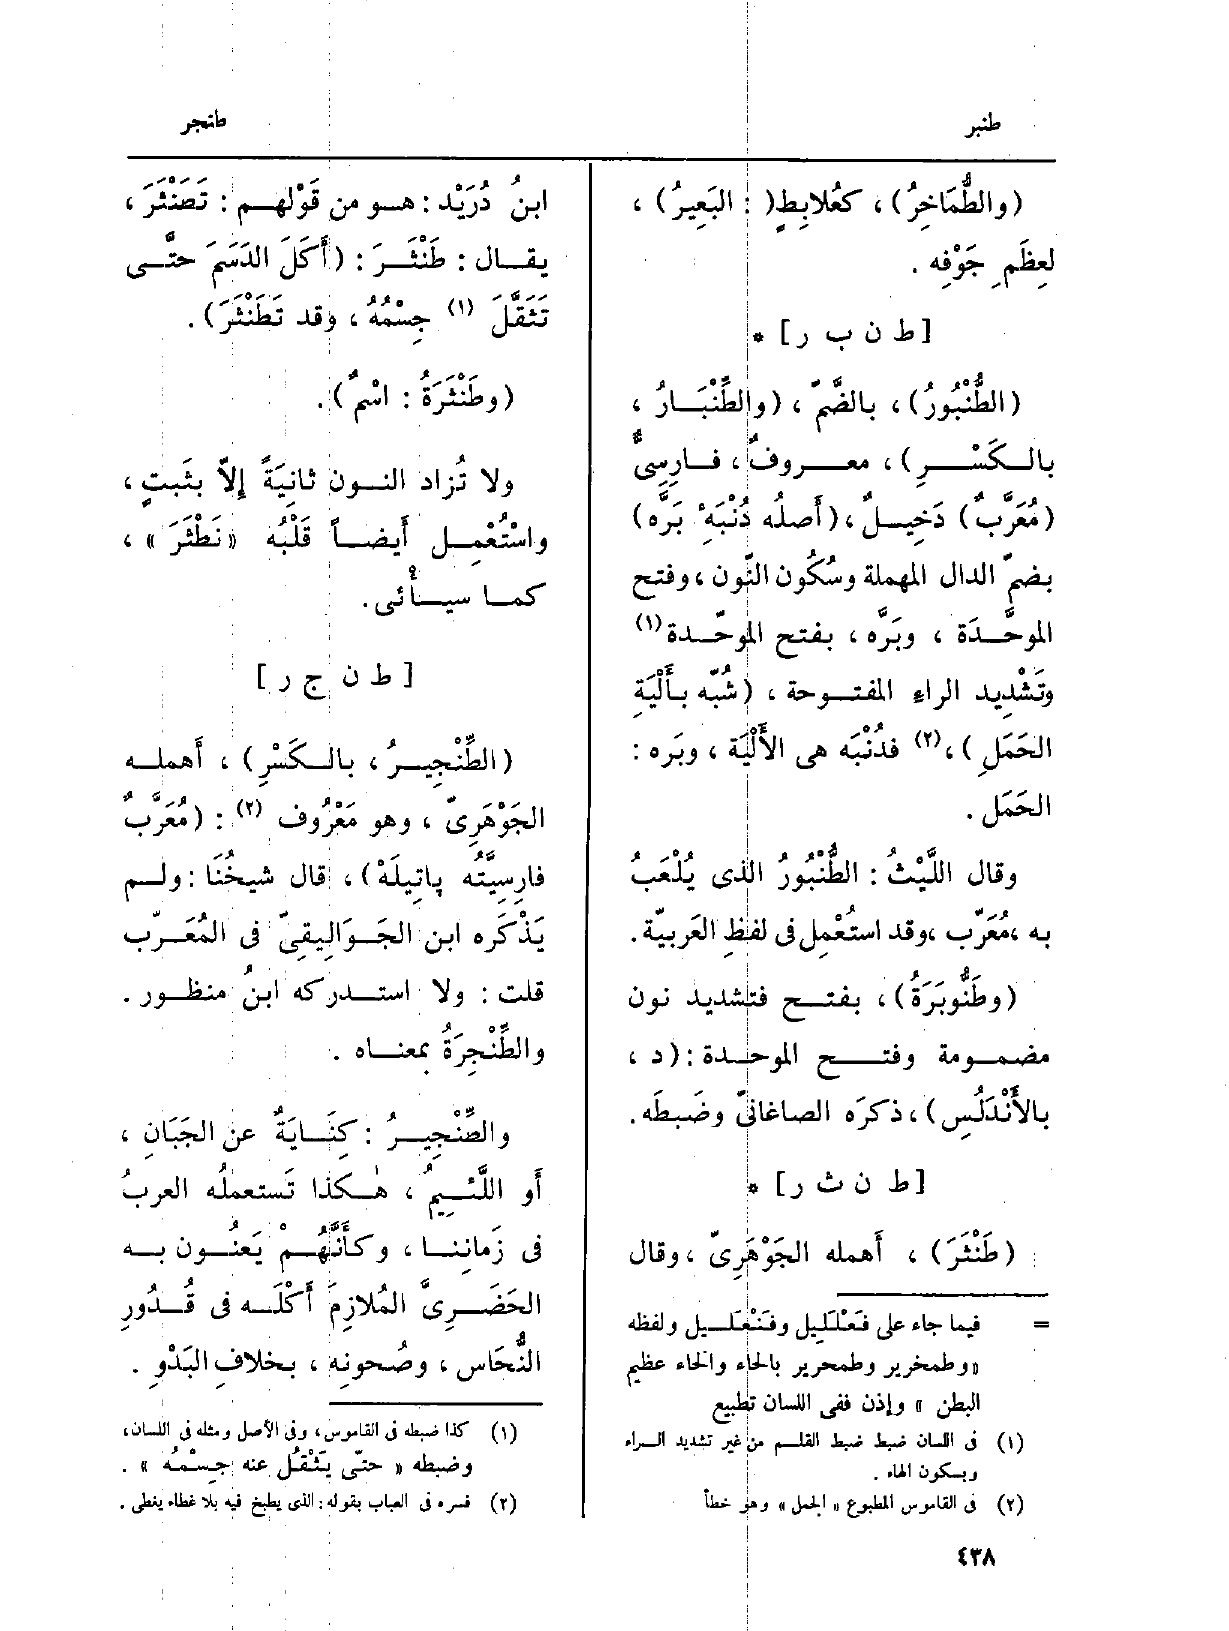 طنبر
طنجر
(والطُّمَاخِرُ)، كعُلابِطٍ( : البَعِيرُ) ،
لعِظَمِ جَوْفِه .
[ ط ن ب ر ] *
(الطُّنْبُورُ)، بالضَّمّ ، (والطِّنْبَارُ ،
بالكَسْرِ)، معروفٌ ، فارِسِىٌّ
(مُعَرَّبٌ) دَخِيلٌ ، (أَصلُه دُنْبَهِ بَرَّه)
بضمّ الدال المهملة وسُكُون النُّون ، وفتح
الموحَّدَة ، وبَرَّه ، بفتح الموحّدة (١)
وتَشْدِيد الراءِ المفتوحة ، (شُبِّه بأَلْيَةِ
الحَمَلِ)، (٢) فدُنْبَه هى الأَلْيَة ، وبَره :
الحَمَل .
وقال اللَّيْثُ : الطُّنْبُورُ الذى يُلْعَبُ
به ، مُعَرَّب ، وقد استُعْمِل فى لفظِ العَربيّة .
(وطَنُّوبَرَةُ)، بفتح فتشديد نون
مضمومة وفتح الموحدة : (د ،
بالأَنْدَلُسِ)، ذكرَه الصاغانىّ وضَبطَه .
[ ط ن ث ر ] *
(طَنْثَرَ) ، أَهمله الجَوْهَرِىّ ، وقال
= فيما جاء على فَعْلَلِيل وفَنْعَلِيل ولفظه
« وطمخرير وطمحرير بالحاء والخاء عظيم
البطن » وإذن ففى اللسان تطبيع
(١) فى اللسان ضبط ضبط القلم من غير تشديد الراء
وبسكون الهاء .
(٢) فى القاموس المطبوع « الجمل » وهو خطأ
ابنُ دُرَيْد : هو من قَوْلهم : تَصَنْثَرَ ،
يقال : طَنْثَرَ : (أَكَلَ الدَّسَمَ حتَّى
تَثَقَّلَ (١) جِسْمُهُ ، وقد تَطَنْثَرَ) .
(وطَنْثَرَةُ : اسْمٌ) .
ولا تُزاد النون ثانِيَةً إلاّ بثَبتٍ ،
واسْتُعْمِل أَيضاً قَلْبُه « نَطْثَرَ » ،
كما سيأْتى .
[ ط ن ج ر ]
(الطِّنْجِيرُ ، بالكَسْرِ) ، أَهمله
الجَوْهَرِىّ ، وهو مَعْرُوف (٢) : (مُعَرَّبٌ
فارِسِيَّتُه پاتِيلَهْ) ، قال شيخُنَا : ولم
يَذْكُره ابن الجَوَالِيقِىّ فى المُعَرَّب
قلت : ولا استدركه ابنُ منظور .
والطِّنْجِرَةُ بمعناه .
والطِّنْجِيرُ : كِنَايَةٌ عن الجَبَانِ ،
أَو اللَّئِيمُ ، هٰكذا تَستعملُه العربُ
فى زَمانِنا ، وكأَنَّهُمْ يَعنُون به
الحَضَرِىَّ المُلازِمَ أَكْلَه فى قُدُورِ
النُّحَاس ، وصُحونِه ، بخلافِ البَدْوِ .
(١) كذا ضبطه فى القاموس ، وفى الأصل ومثله فى اللسان ،
وضبطه « حتّى يَثْقُلَ عنه جِسْمُهُ » .
(٢) فسره فى العباب بقوله : الذى يطبخ فيه بلا غطاء يغطى .
٤٣٨